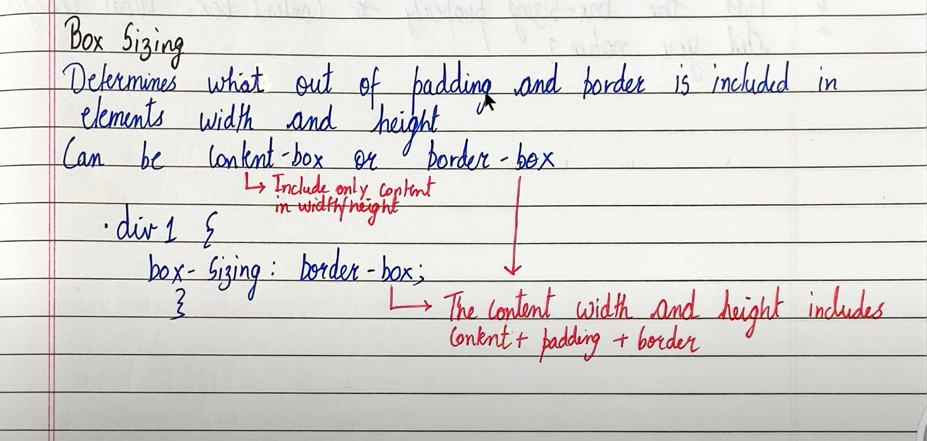 Box Sizing
Determines what out of padding and border is included in
elements width and height
Can be content-box or border-box
↳ Include only content
in width/height
.div1 {
box-sizing: border-box;
}
↳ The content width and height includes
content + padding + border